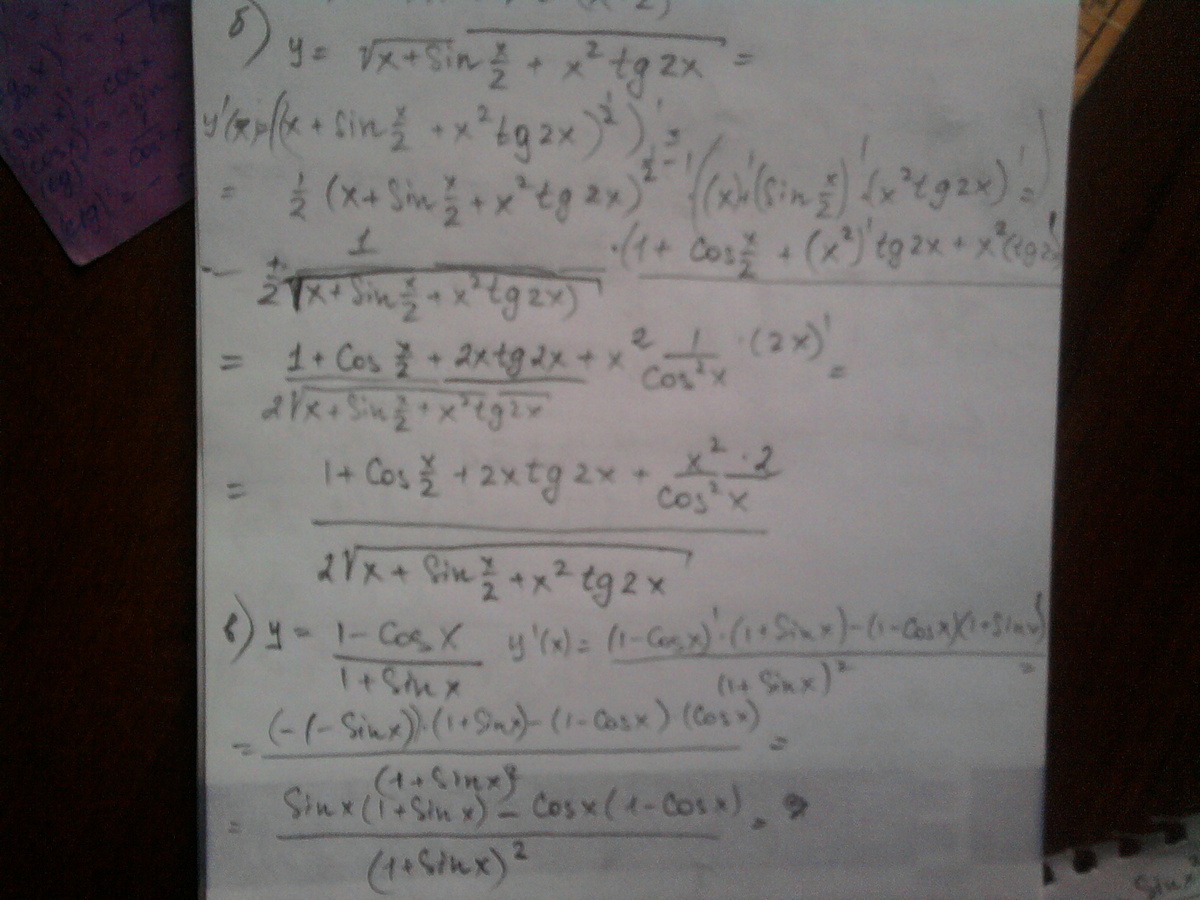 б) y = √x + Sin x/2 + x² tg 2x =
y'(x) = ((x + sin x/2 + x² tg 2x)^½)' =
= 1/2 (x + Sin x/2 + x² tg 2x)^(½ - 1) ((x)' + (Sin x/2)' + (x² tg 2x)') =
1/2√x + Sin x/2 + x² tg 2x) · (1 + Cos x/2 + (x²)' tg 2x + x² (tg 2
= 1 + Cos x/2 + 2x tg 2x + x² 1/Cos² x · (2x)' / 2√x + Sin x/2 + x² tg 2x =
= 1 + Cos x/2 + 2x tg 2x + x² · 2/Cos² x / 2√x + Sin x/2 + x² tg 2x
в) y = 1 - Cos x / 1 + Sin x y'(x) = (1 - Cos x)' · (1 + Sin x) - (1 - Cos x)(1 + Sin x)' / (1 + Sin x)² =
= (-(-Sin x)) · (1 + Sin x) - (1 - Cos x) · (Cos x) / (1 + Sin x)² =
= Sin x (1 + Sin x) - Cos x (1 - Cos x) / (1 + Sin x)² =
Sin x